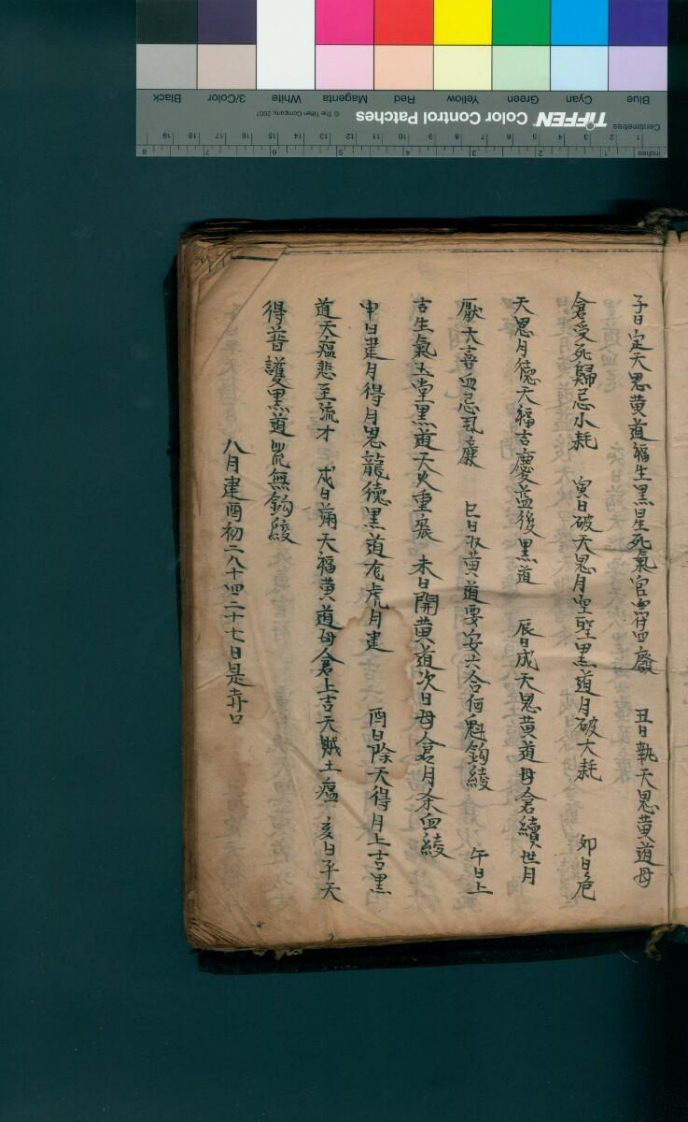 子日定天恩黄道福生黑星死氣官符四廢 丑日執天恩黄道母
倉受死歸忌小耗 寅日破天恩月空聖黑道月破大耗 卯日危
天恩月德天福吉慶益後黑道 辰日成天恩黄道母倉續世月
厭大喜血忌 巳日收黄道要安六合河魁鈎綾 午日上
吉生氣玉堂黑道天火重 未日開黄道次日母倉月杀血綾
申日建月得月恩龍德黑道 虎月建 酉日除天得月上吉黑
道天瘟 至流才 戍日滿天福黄道母倉上吉天賊土瘟 亥日平天
得普護黑道 無鈎綾
八月建酉初二八十四二十七日是 口
TIFFEN Color Control Patches
© The Tiffen Company, 2007
Centimetres
Inches
Blue Cyan Green Yellow Red Magenta White 3/Color Black